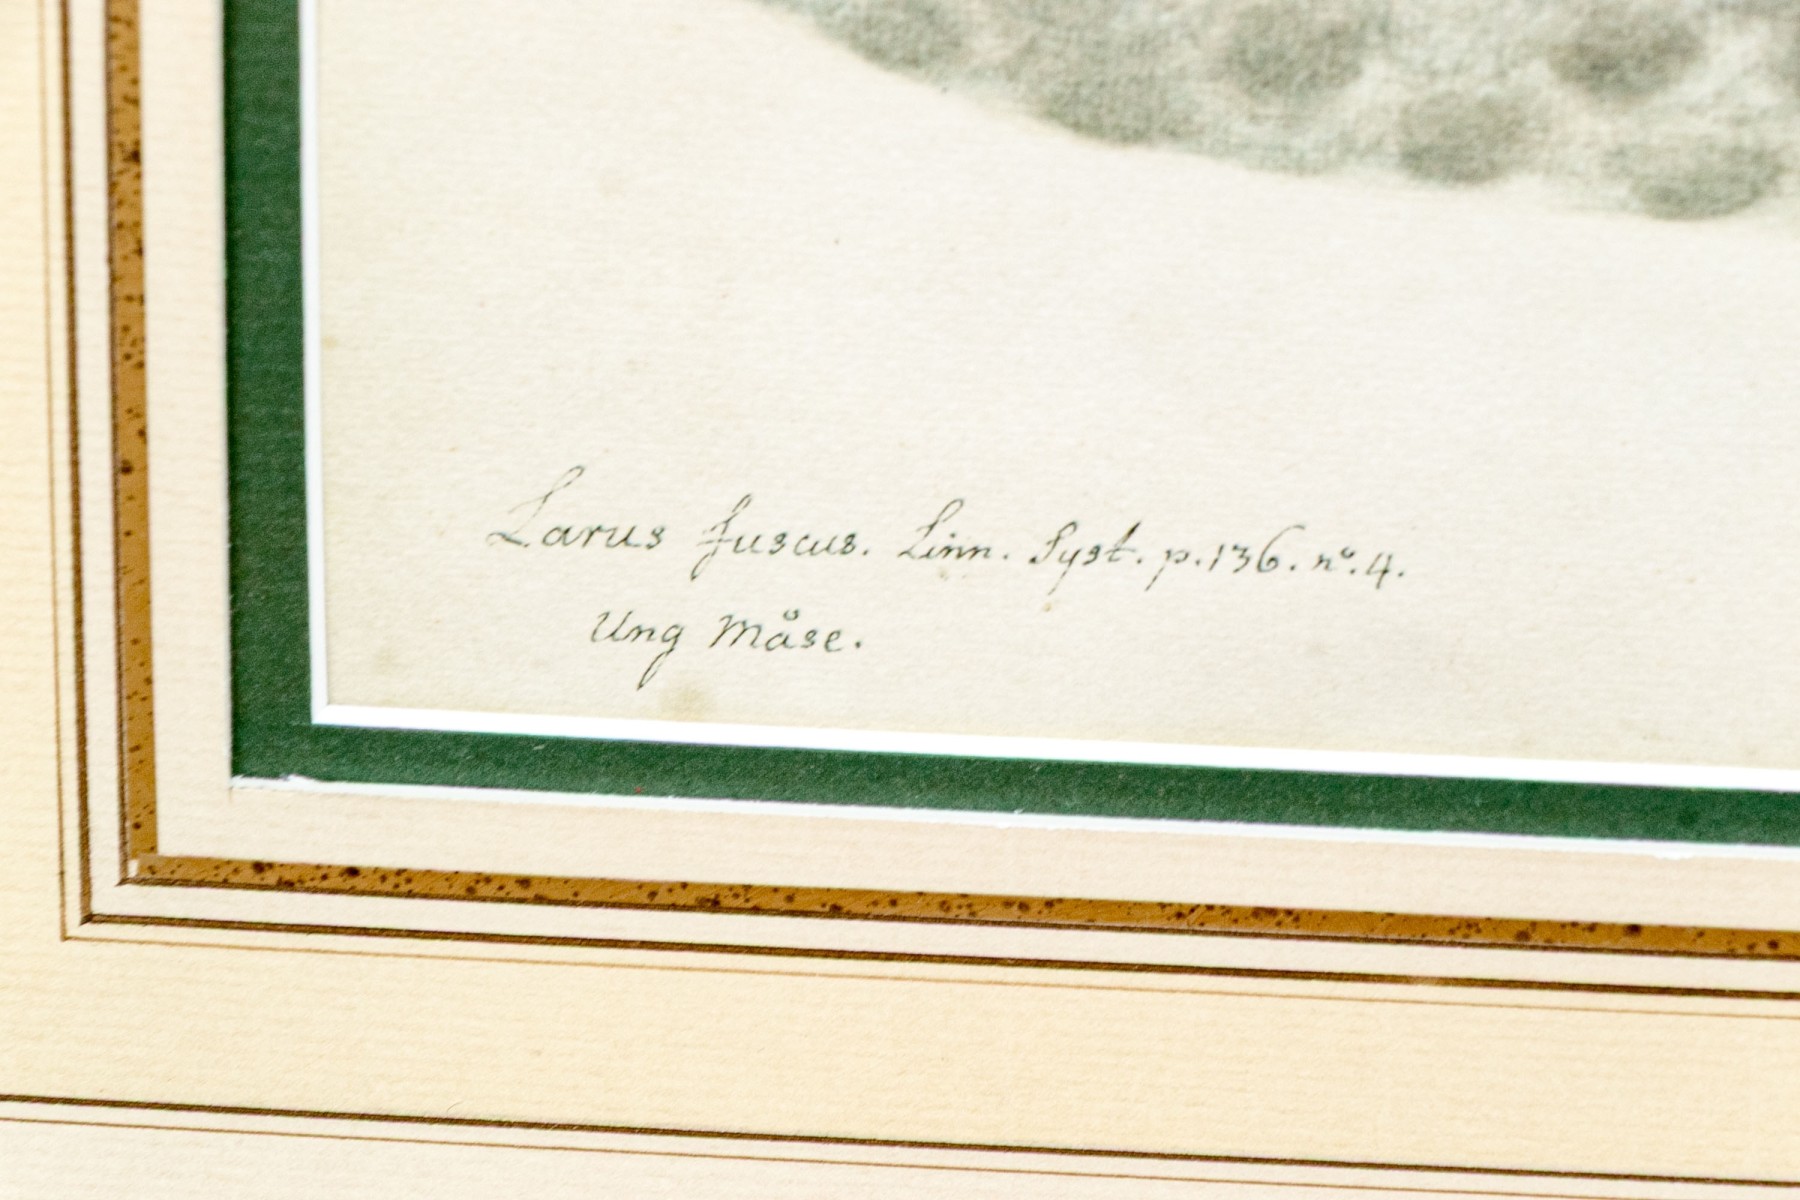 Larus fuscus. Linn. Syst. p. 136. nº. 4.
Ung Måse.